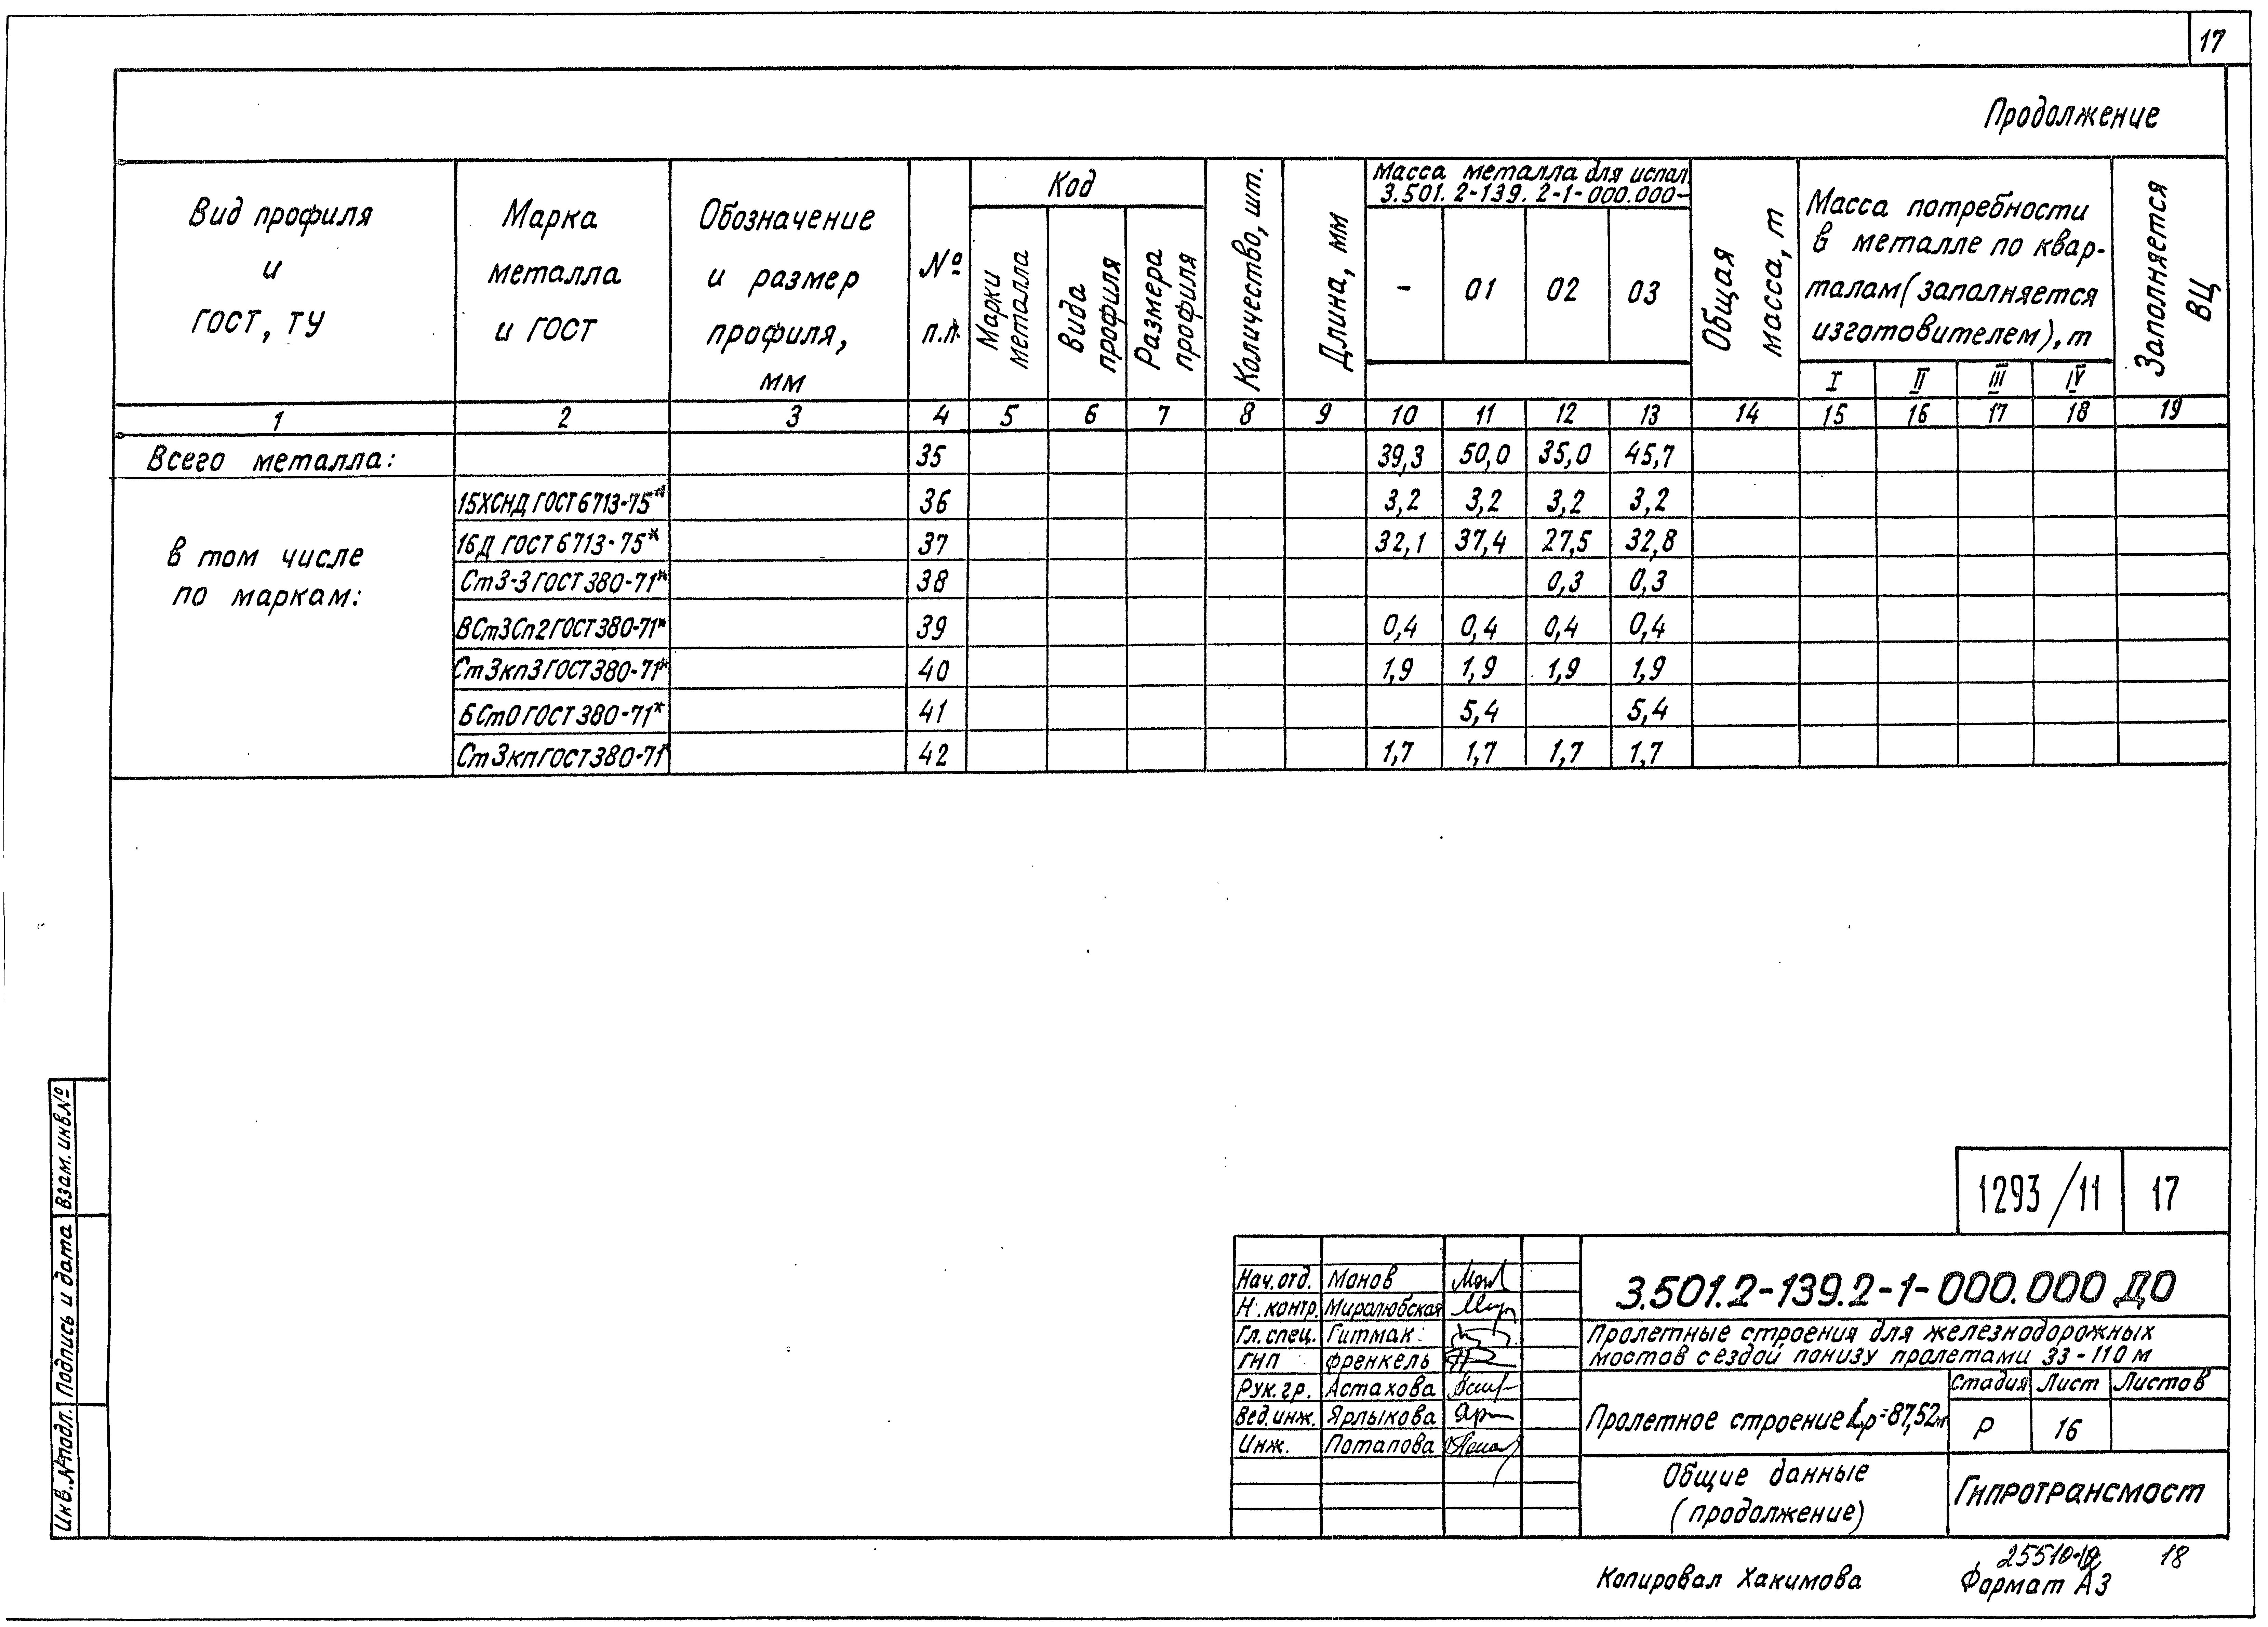 17
Продолжение
Вид профиля
и
ГОСТ, ТУ
Марка
металла
и ГОСТ
Обозначение
и размер
профиля,
мм
№
п.п.
Код
Марки
металла
Вида
профиля
Размера
профиля
Количество, шт.
Длина, мм
Масса металла для испол.
3.501.2-139.2-1-000.000-
- 01 02 03
Общая
масса, т
Масса потребности
в металле по квар-
талам (заполняется
изготовителем), т
I II III IV
Заполняется
ВЦ
1 2 3 4 5 6 7 8 9 10 11 12 13 14 15 16 17 18 19
Всего металла: 35 39,3 50,0 35,0 45,7
в том числе
по маркам:
15ХСНД ГОСТ 6713-75* 36 3,2 3,2 3,2 3,2
16Д ГОСТ 6713-75* 37 32,1 37,4 27,5 32,8
Ст3-3 ГОСТ 380-71* 38 0,3 0,3
ВСт3Сп2 ГОСТ 380-71* 39 0,4 0,4 0,4 0,4
Ст3кп3 ГОСТ 380-71* 40 1,9 1,9 1,9 1,9
БСт0 ГОСТ 380-71* 41 5,4 5,4
Ст3кп ГОСТ 380-71 42 1,7 1,7 1,7 1,7
Взам. инв. №
Подпись и дата
Инв. № подл.
1293/11 17
Нач. отд. Монов
Н. контр. Миролюбская
Гл. спец. Гитмак
ГИП Френкель
Рук. гр. Астахова
Вед. инж. Ярлыкова
Инж. Потапова
3.501.2-139.2-1-000.000 ДО
Пролетные строения для железнодорожных
мостов с ездой понизу пролетами 33-110 м
Пролетное строение Lp=87,52м
Стадия Лист Листов
Р 16
Общие данные
(продолжение)
Гипротрансмост
Копировал Хакимова
18
Формат А3